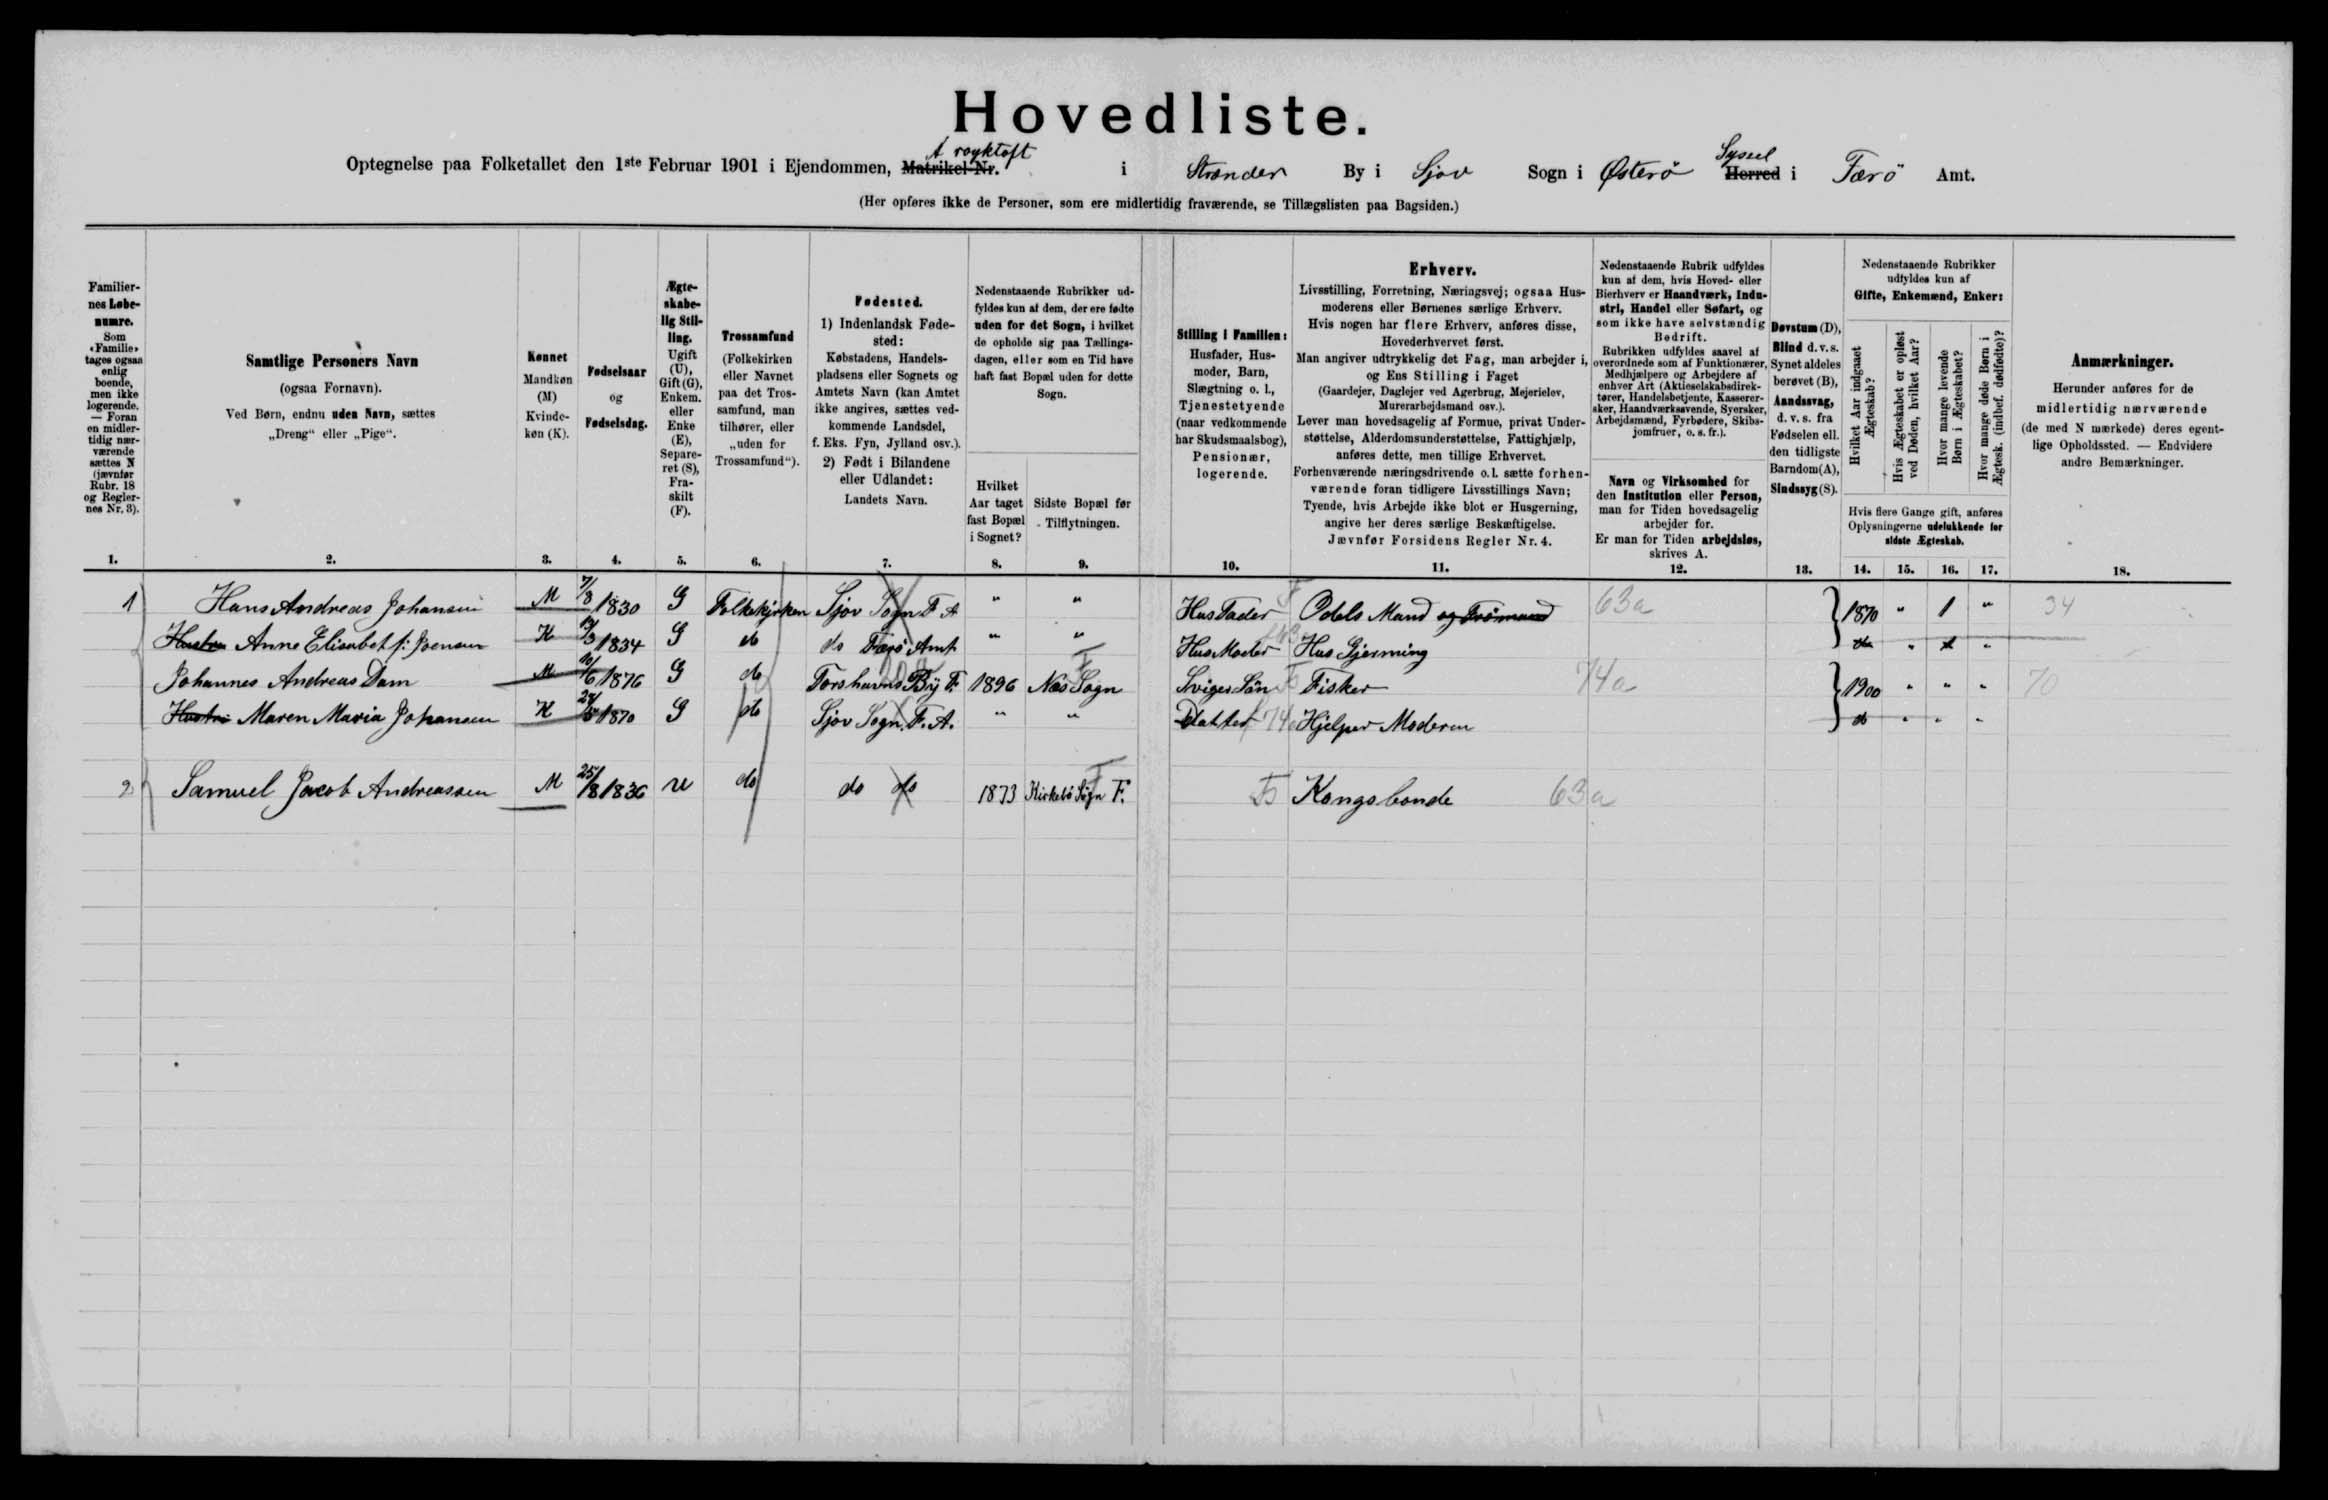 Hovedliste.
A royktoft
Optegnelse paa Folketallet den 1ste Februar 1901 i Ejendommen, Matrikel-Nr. i Strender By i Sjov Sogn i Østerö Syssel Herred i Færö Amt.
(Her opføres ikke de Personer, som ere midlertidig fraværende, se Tillægslisten paa Bagsiden.)
Familiernes Løbenumre.
Som «Familie» tages ogsaa enlig boende, men ikke logerende. — Foran en midlertidig nærværende sættes N (jævnfør Rubr. 18 og Reglernes Nr. 3).
1.
Samtlige Personers Navn
(ogsaa Fornavn).
Ved Børn, endnu uden Navn, sættes
„Dreng“ eller „Pige“.
2.
Kønnet
Mandkøn (M)
Kvindekøn (K).
3.
Fødselsaar
og
Fødselsdag.
4.
Ægteskabelig Stilling.
Ugift (U), Gift (G), Enkem. eller Enke (E), Separeret (S), Fraskilt (F).
5.
Trossamfund
(Folkekirken eller Navnet paa det Trossamfund, man tilhører, eller „uden for Trossamfund“).
6.
Fødested.
1) Indenlandsk Fødested:
Købstadens, Handelspladsens eller Sognets og Amtets Navn (kan Amtet ikke angives, sættes vedkommende Landsdel, f. Eks. Fyn, Jylland osv.).
2) Født i Bilandene eller Udlandet:
Landets Navn.
7.
Nedenstaaende Rubrikker udfyldes kun af dem, der ere fødte uden for det Sogn, i hvilket de opholde sig paa Tællingsdagen, eller som en Tid have haft fast Bopæl uden for dette Sogn.
Hvilket Aar taget fast Bopæl i Sognet?
8.
Sidste Bopæl før Tilflytningen.
9.
Stilling i Familien:
Husfader, Husmoder, Barn, Slægtning o. l., Tjenestetyende (naar vedkommende har Skudsmaalsbog), Pensionær, logerende.
10.
Erhverv.
Livsstilling, Forretning, Næringsvej; ogsaa Husmoderens eller Børnenes særlige Erhverv.
Hvis nogen har flere Erhverv, anføres disse, Hovederhvervet først.
Man angiver udtrykkelig det Fag, man arbejder i, og Ens Stilling i Faget
(Gaardejer, Daglejer ved Agerbrug, Mejerielev, Murerarbejdsmand osv.).
Lever man hovedsagelig af Formue, privat Understøttelse, Alderdomsunderstøttelse, Fattighjælp, anføres dette, men tillige Erhvervet.
Forhenværende næringsdrivende o. l. sætte forhenværende foran tidligere Livsstillings Navn; Tyende, hvis Arbejde ikke blot er Husgerning, angive her deres særlige Beskæftigelse.
Jævnfør Forsidens Regler Nr. 4.
11.
Nedenstaaende Rubrik udfyldes kun af dem, hvis Hoved- eller Bierhverv er Haandværk, Industri, Handel eller Søfart, og som ikke have selvstændig Bedrift.
Rubrikken udfyldes saavel af overordnede som af Funktionærer, Medhjælpere og Arbejdere af enhver Art (Aktieselskabsdirektører, Handelsbetjente, Kasserersker, Haandværkssvende, Syersker, Arbejdsmænd, Fyrbødere, Skibsjomfruer, o. s. fr.).
Navn og Virksomhed for den Institution eller Person, man for Tiden hovedsagelig arbejder for.
Er man for Tiden arbejdsløs, skrives A.
12.
Døvstum (D), Blind d. v. s. Synet aldeles berøvet (B), Aandssvag, d. v. s. fra Fødselen ell. den tidligste Barndom (A), Sindssyg (S).
13.
Nedenstaaende Rubrikker udfyldes kun af
Gifte, Enkemænd, Enker:
Hvilket Aar indgaaet Ægteskab?
Hvis Ægteskabet er opløst ved Døden, hvilket Aar?
Hvor mange levende Børn i Ægteskabet?
Hvor mange døde Børn i Ægtesk. (indbef. dødfødte)?
Hvis flere Gange gift, anføres Oplysningerne udelukkende for sidste Ægteskab.
14. 15. 16. 17.
Anmærkninger.
Herunder anføres for de midlertidig nærværende (de med N mærkede) deres egentlige Opholdssted. — Endvidere andre Bemærkninger.
18.
1 Hans Andreas Johansen M 7/8 1830 G Folkekjrken Sjov Sogn F A " " HusFader F Odels Mand og 63a 1870 " 1 " 34
Hustru Anne Elisabet f: Joensen K 1834 G do do Færö Amt " " HusModer Hus Gjerning do " 1 "
Johannes Andreas Dam M 10/6 1876 G do Torshavns By F. 1896 Næs Sogn SvigerSön Fisker 74a 1900 " " " 70
Hustru Maren Maria Johansen K 1870 G do Sjov Sogn F. A. " " Datter Hjelper Moderen do " " "
2 Samuel Jacob Andreassen M 25/8 1836 U do do do 1873 Kirkebö Sogn F. Kongsbonde 63a